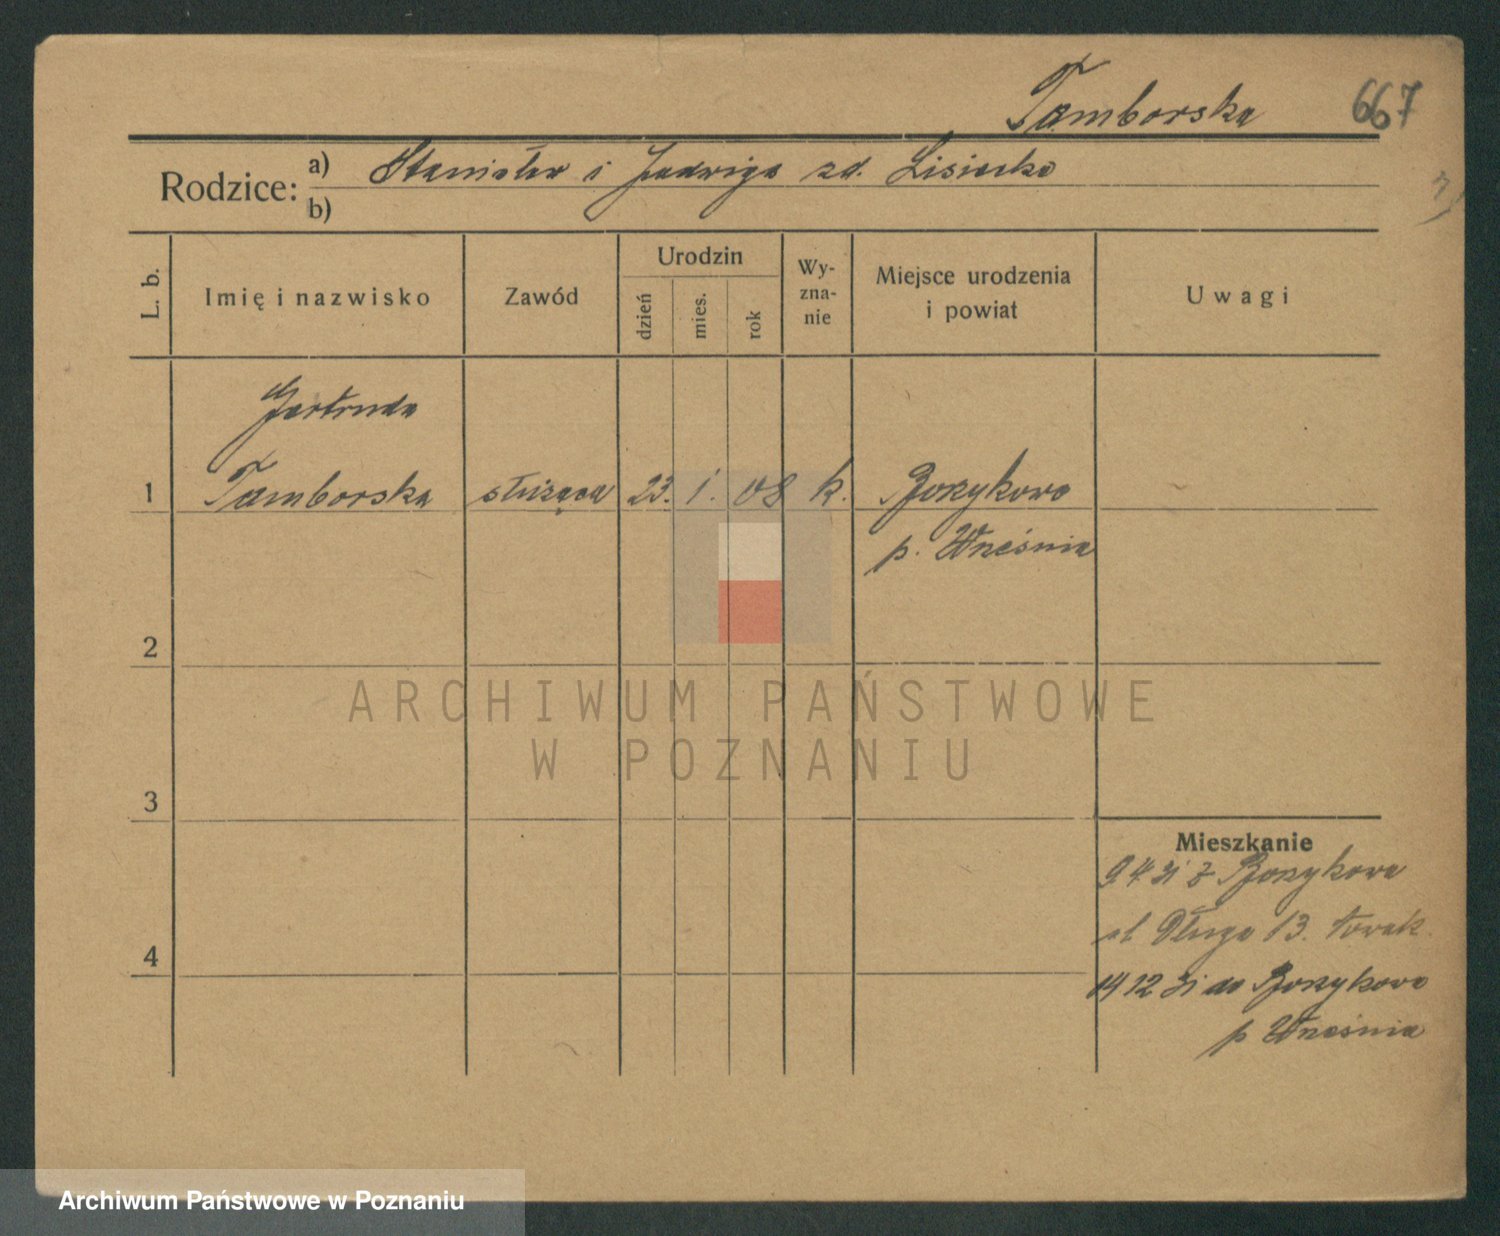 Tamborska 667
Rodzice: a) Stanisław i Jadwiga zd. Lisiecka
b)
L. b. Imię i nazwisko Zawód Urodzin dzień mies. rok Wy-zna-nie Miejsce urodzenia i powiat Uwagi
Gertruda
1 Tamborska służąca 23. 1. 08 k. Borzykowo
p. Września
2
ARCHIWUM PAŃSTWOWE
W POZNANIU
3
Mieszkanie
9 4 31 z Borzykowa
ul Długa 13.
4
14 12 31 do Borzykowo
p Września
Archiwum Państwowe w Poznaniu